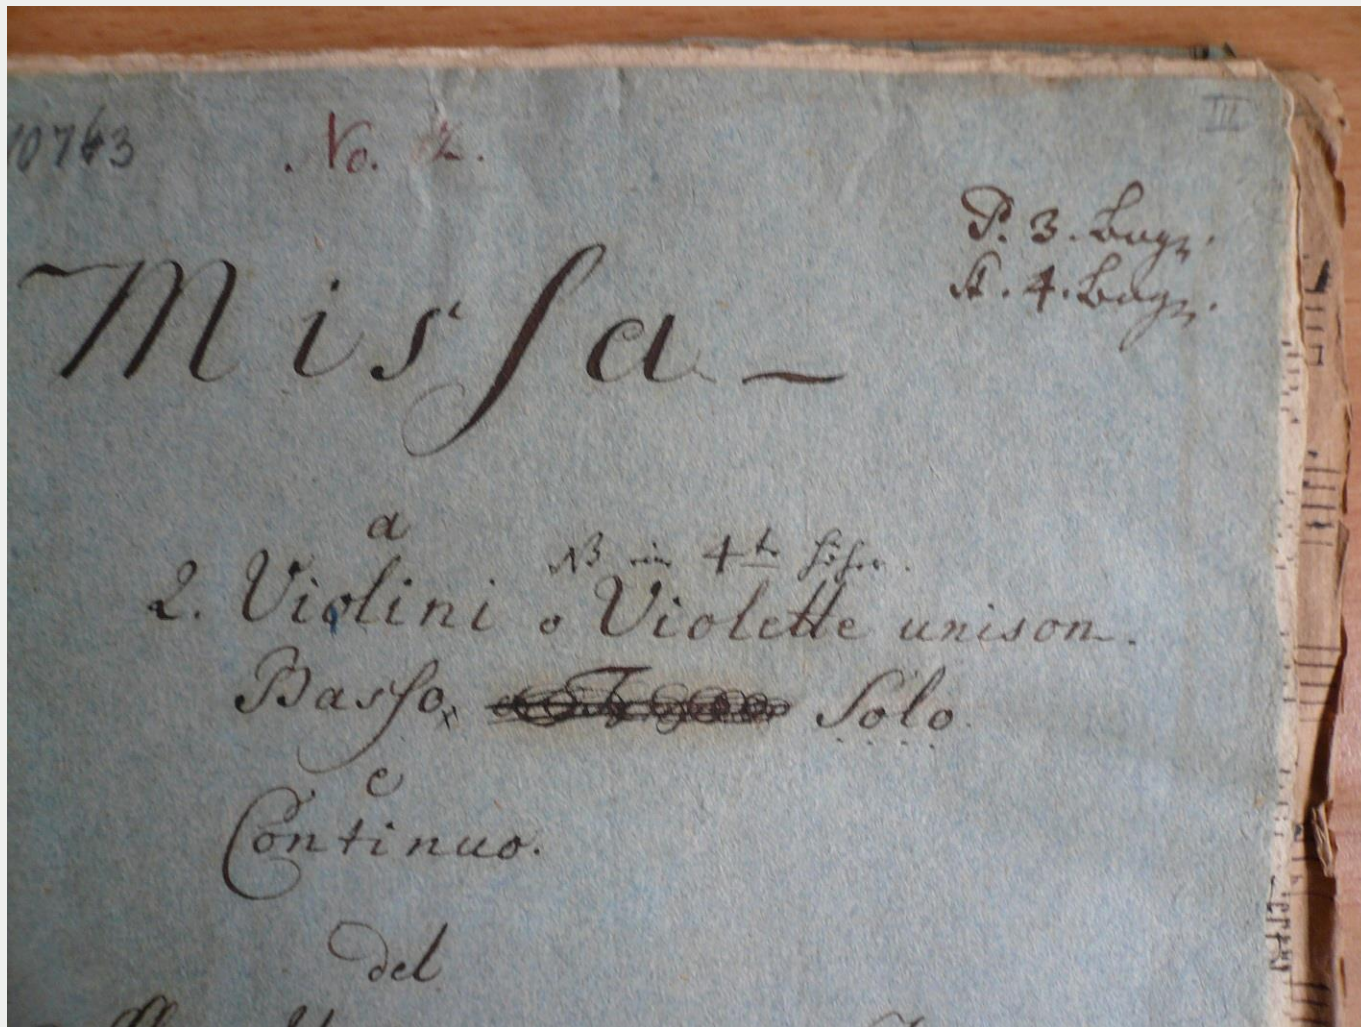 10743 No. 2. III
P. 3. Bog.
St. 4. Bog.
Missa
a
NB in 4te höher.
2. Violini o Violette unison.
Basso, Solo
e
Continuo.
del